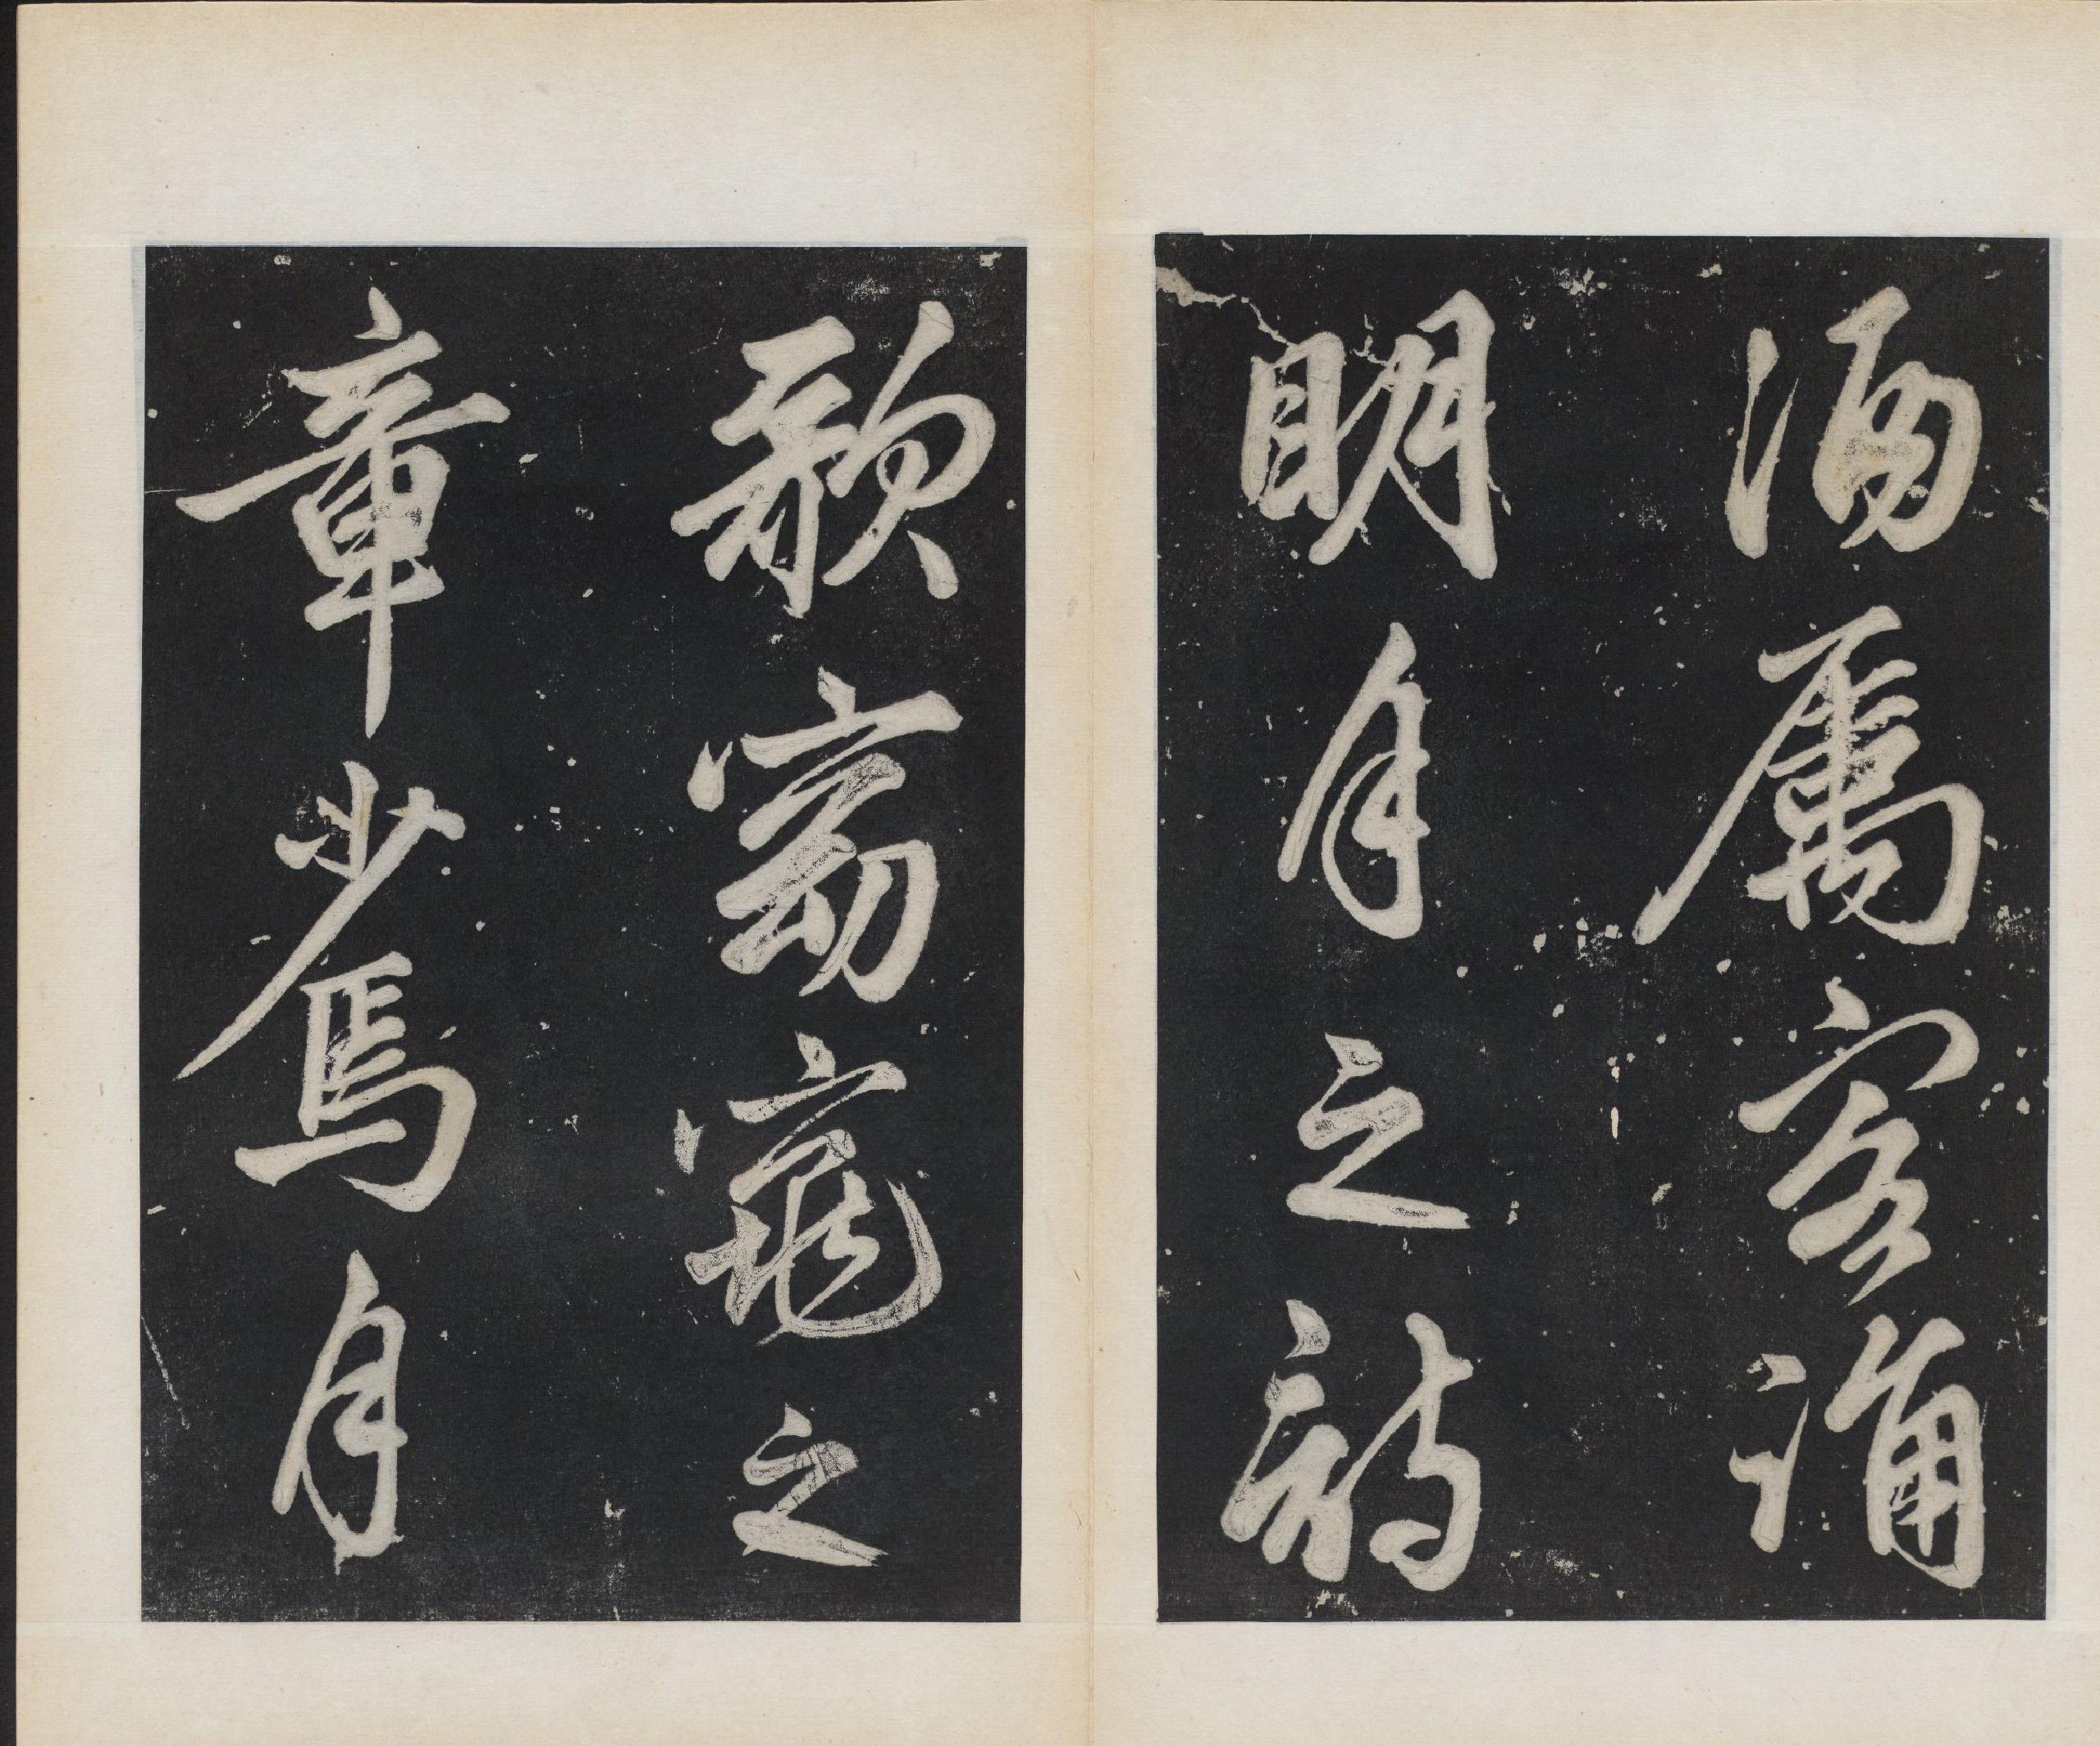 酒属客誦
明月之詩
歌窈窕之
章少焉月